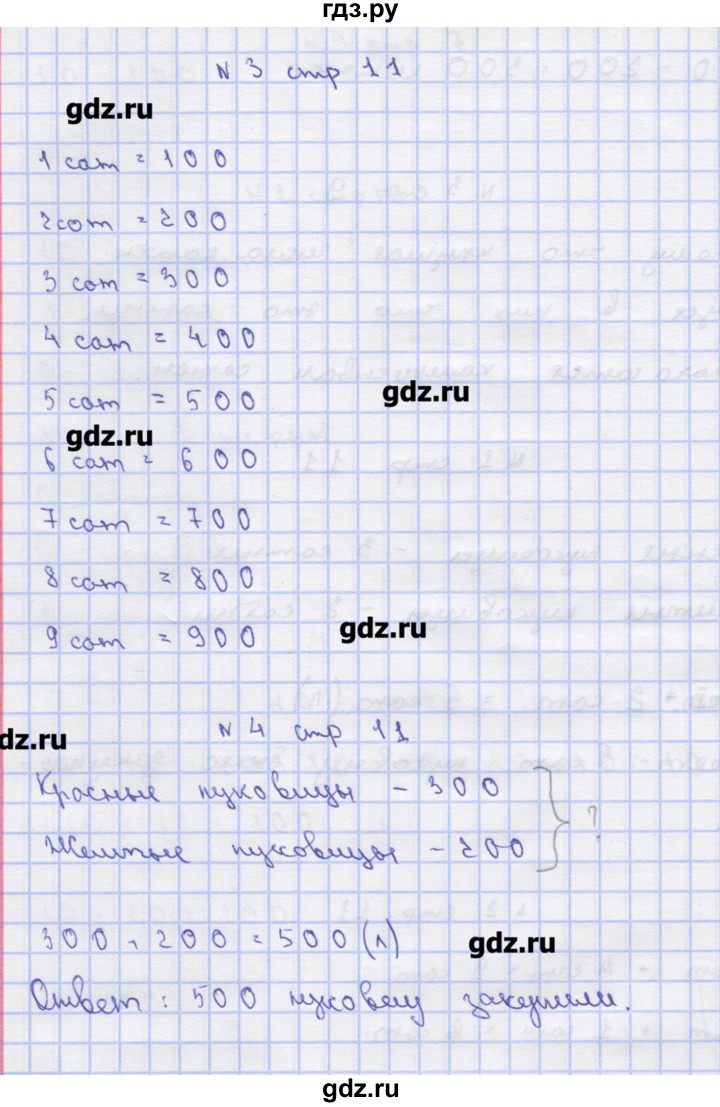 гдз.ру
N 3 стр 11
gdz.ru
1 сот = 100
2 сот = 200
3 сот = 300
4 сот = 400
gdz.ru
5 сот = 500
gdz.ru
6 сот = 600
7 сот = 700
8 сот = 800
gdz.ru
9 сот = 900
N 4 стр 11
dz.ru
Красные пуковицы - 300
?
Желтые пуковицы - 200
300 + 200 = 500 (л)
gdz.ru
Ответ: 500 луковец закупили.
gdz.ru